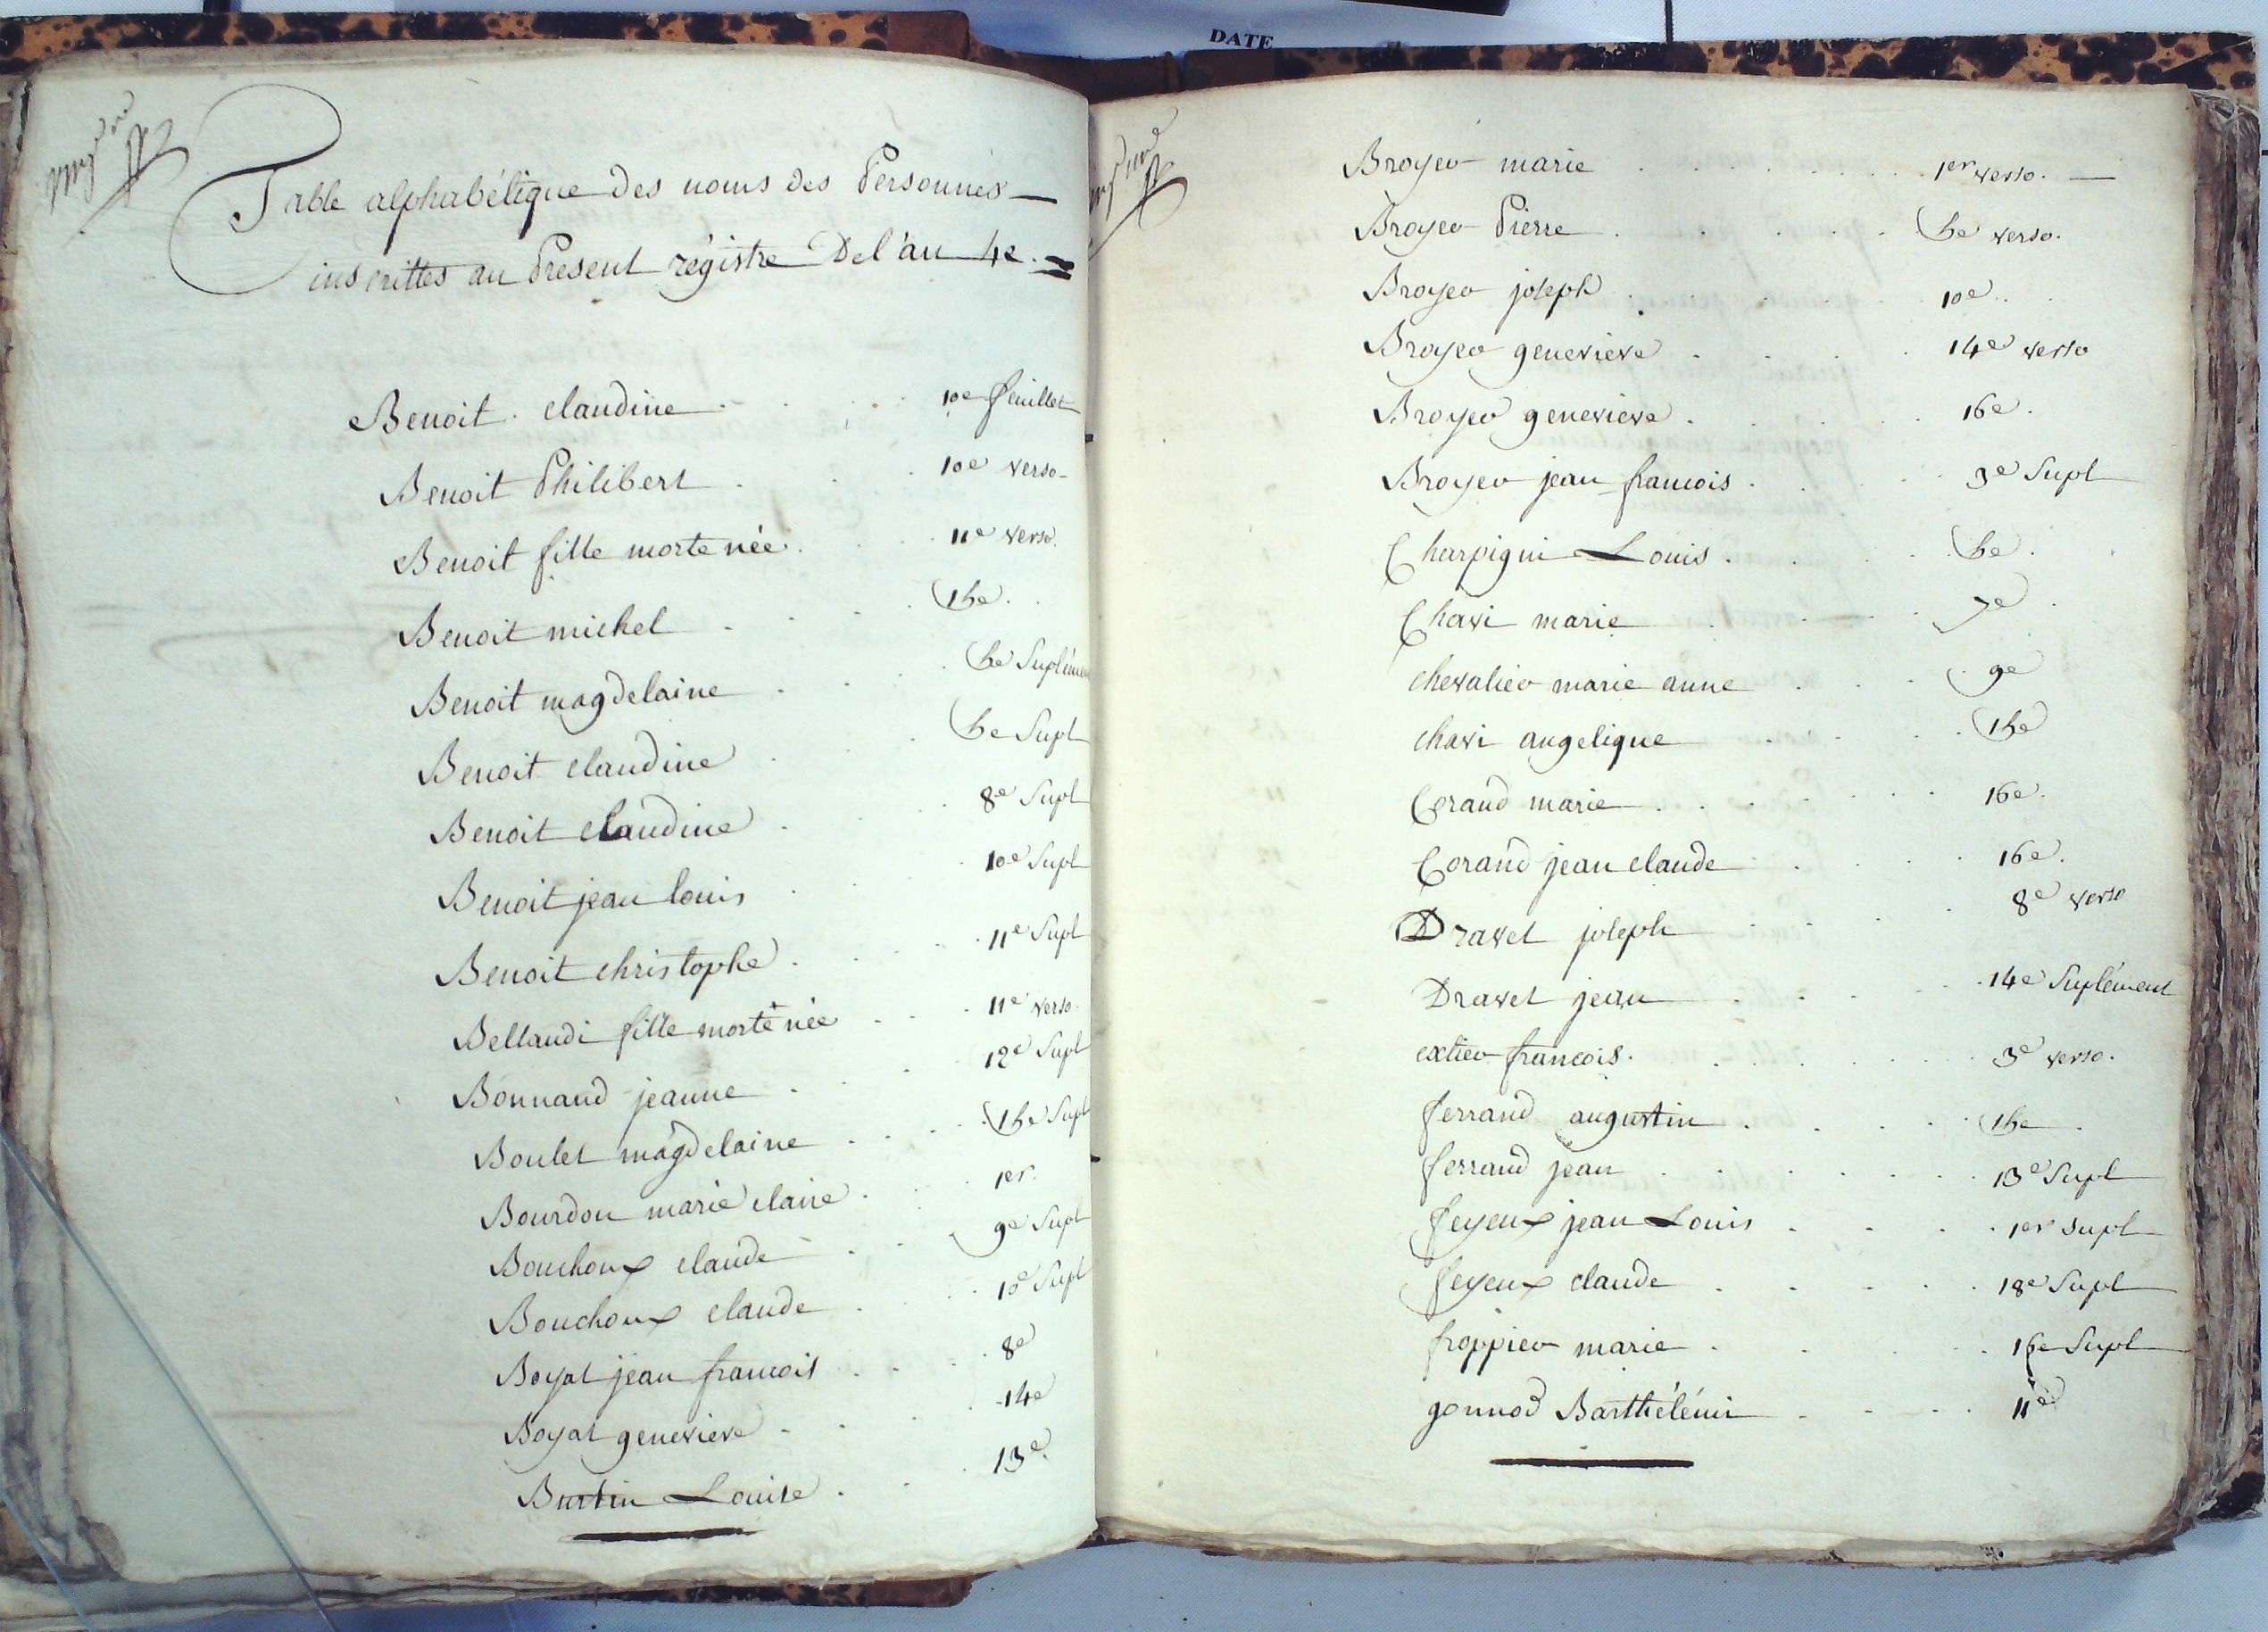 DATE
Table alphabétique des noms des Personnes
inscrittes au Présent régistre De l'an 4e.
Benoit claudine 10e feuillet
Benoit Philibert 10e verso
Benoit fille morte née 11e verso.
Benoit michel 15e.
Benoit magdelaine 5e Suplémen
Benoit claudine 5e Supl
Benoit claudine 8e Supl
Benoit jean louis 10e Supl
Benoit christophe 11e Supl
Bellaudi fille morte née 11e verso.
Bonnand jeanne 12e Supl
Boulet magdelaine 15e Supl
Bourdon marie claire 1er.
Bouchoux claude 9e Supl
Bouchoux claude 10e Supl
Boyat jean francois 8e
Boyat genevieve 14e
Burtin Louise 13e.
Broyer marie 1er verso.
Broyer Pierre 5e verso.
Broyer joseph 10e
Broyer genevieve 14e verso
Broyer genevieve 16e.
Broyer jean francois 3e Supl
Charpigni Louis 5e.
Chavi marie 7e
chevalier marie anne 9e
chavi angelique 15e
Corand marie 16e.
Corand jean claude 16e.
Dravet joseph 8e verso
Dravet jean 14e Suplément
extier francois. 3e verso.
ferrand augustin 15e
ferrand jean 13e Supl
feyeux jean Louis 1er Supl
feyeux claude 18e Supl
froppier marie 15e Supl
gonnod Barthélémi 11e